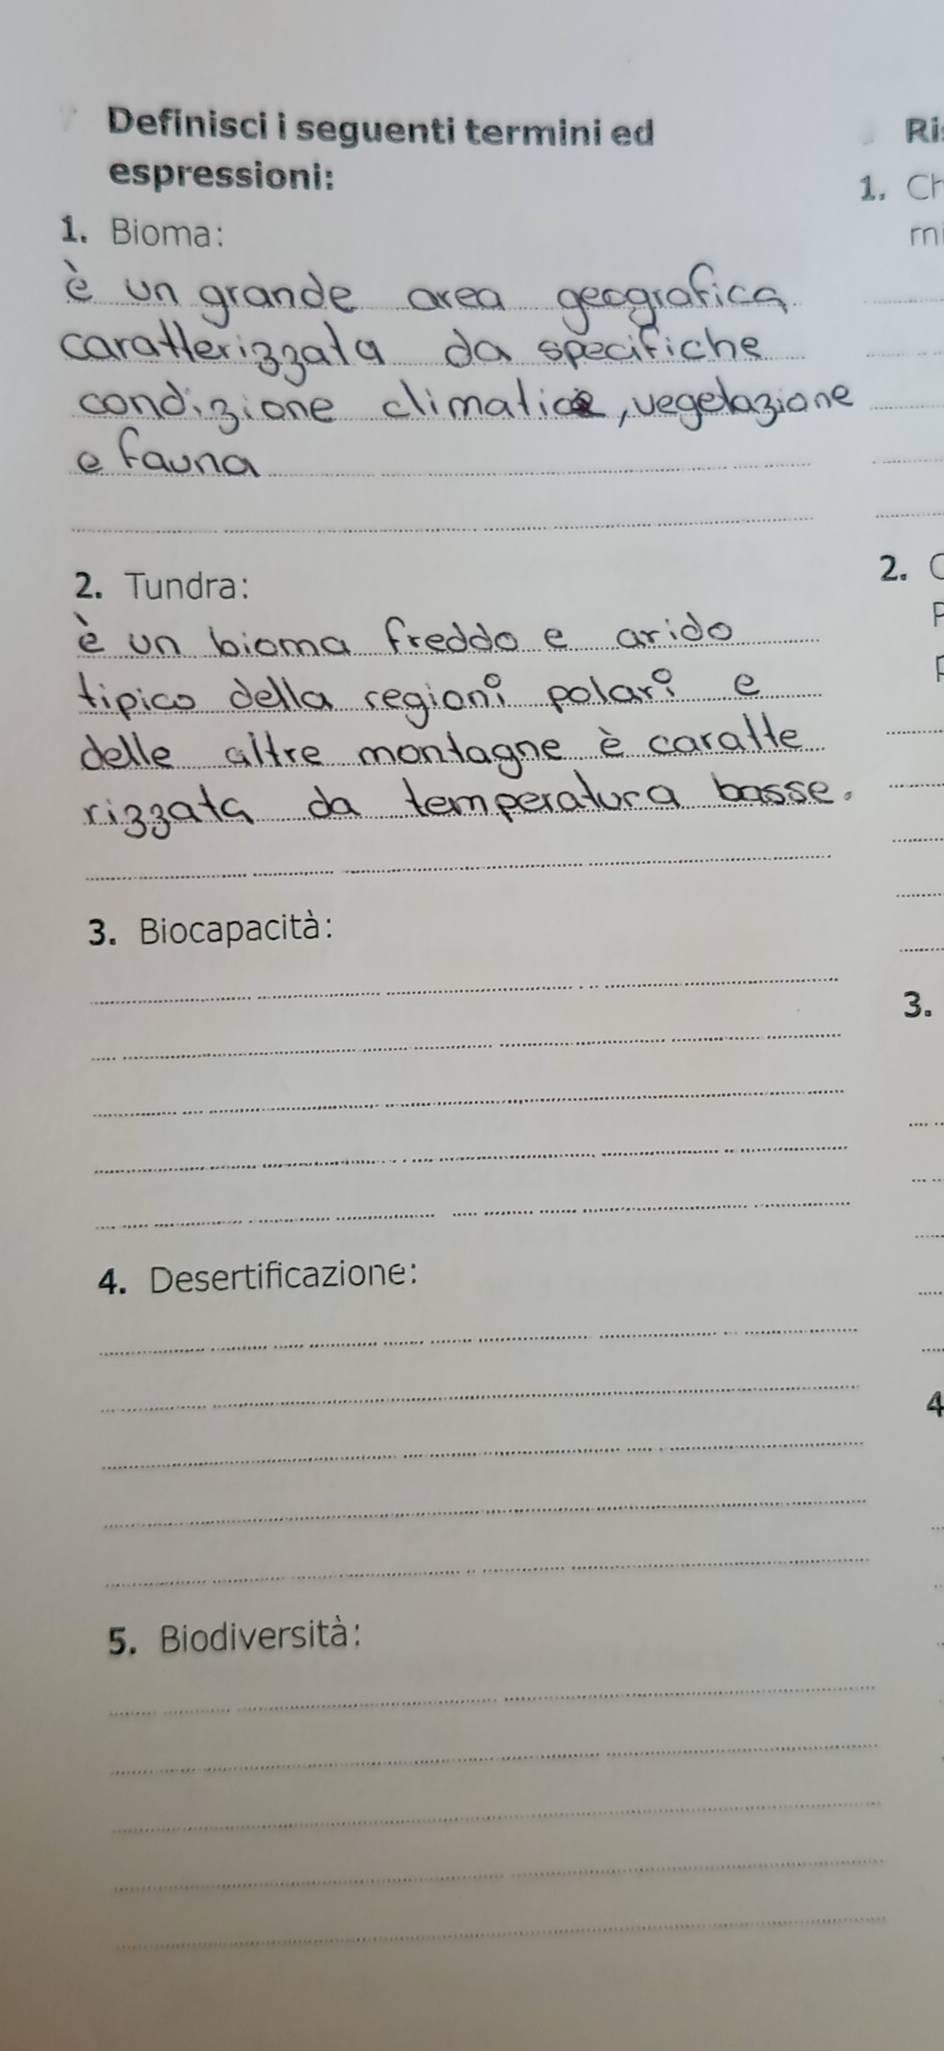 Definisci i seguenti termini ed
espressioni:
1. Bioma:
è un grande area geografica
caratterizzata da specifiche
condizione climatice, vegetazione
e fauna
2. Tundra:
è un bioma freddo e arido
tipico della regioni polari e
delle altre montagne è caratte
rizzata da temperatura basse.
3. Biocapacità:
4. Desertificazione:
5. Biodiversità:
Ri
1. Ch
m
2.
3.
4